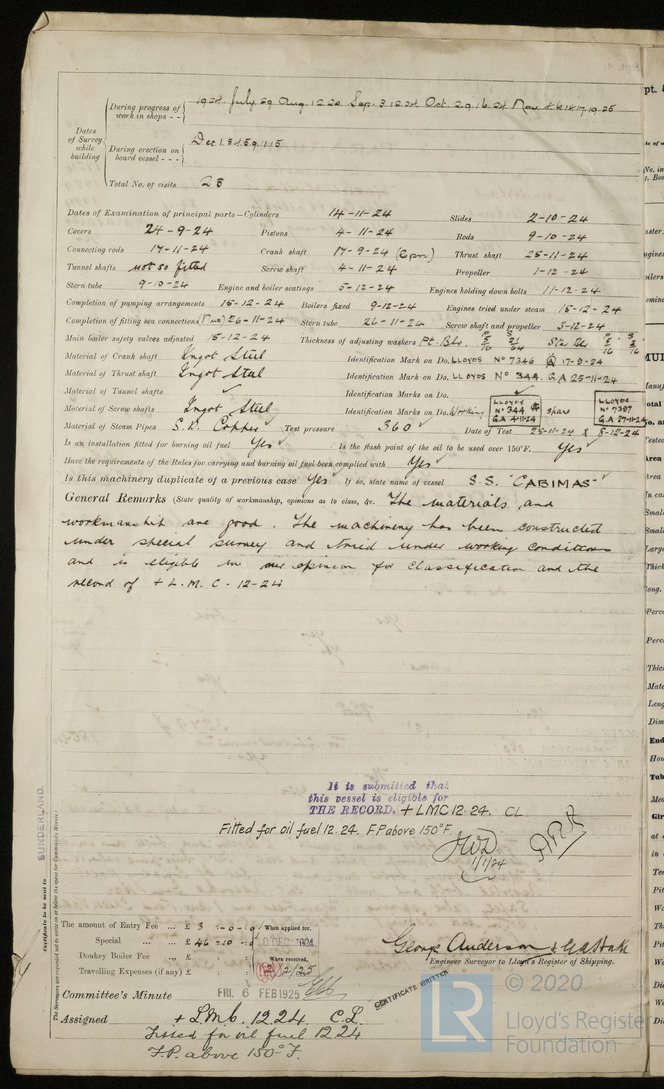 During progress of work in shops - - 1924. July 29 Aug. 12 20 Sep. 3. 12 24 Oct. 2 9. 16. 24 Nov.
Dates of Survey while building
During erection on board vessel - - -
Total No. of visits 28
Dates of Examination of principal parts—Cylinders 14-11-24 Slides 2-10-24
Covers 24-9-24 Pistons 4-11-24 Rods 9-10-24
Connecting rods 17-11-24 Crank shaft 17-9-24 Thrust shaft 25-11-24
Tunnel shafts not so fitted Screw shaft 4-11-24 Propeller 1-12-24
Stern tube 9-10-24 Engine and boiler seatings 5-12-24 Engines holding down bolts 11-12-24
Completion of pumping arrangements 15-12-24 Boilers fixed 9-12-24 Engines tried under steam 15-12-24
Completion of fitting sea connections 26-11-24 Stern tube 26-11-24 Screw shaft and propeller 5-12-24
Main boiler safety valves adjusted 15-12-24 Thickness of adjusting washers
Material of Crank shaft Ingot Steel Identification Mark on Do. LLOYDS No 7346 17-9-24
Material of Thrust shaft Ingot Steel Identification Mark on Do. LLOYDS No 344. G.A 25-11-24
Material of Tunnel shafts Identification Marks on Do.
Material of Screw shafts Ingot Steel Identification Marks on Do. Working LLOYDS No 344 G.A 4-11-24 spare LLOYDS No 7397 G.A 27-11-24
Material of Steam Pipes S.D. Copper Test pressure 360 Date of Test 25-11-24 & 8-12-24
Is an installation fitted for burning oil fuel Yes Is the flash point of the oil to be used over 150°F. Yes
Have the requirements of the Rules for carrying and burning oil fuel been complied with Yes
Is this machinery duplicate of a previous case Yes If so, state name of vessel S.S. "CABIMAS"
General Remarks (State quality of workmanship, opinions as to class, &c. The materials and
workmanship are good. The machinery has been constructed
under special survey and tried under working conditions
and is eligible in our opinion for classification and the
record of + L.M.C - 12-24
It is submitted that
this vessel is eligible for
THE RECORD. + LMC 12.24. CL
Fitted for oil fuel 12.24. F.P. above 150°F.
1/1/24
SUNDERLAND.
Certificate to be sent to
The amount of Entry Fee ... £ 3 : 0 : 0 When applied for,
Special ... £ 46 : 10 : DEC 1924
Donkey Boiler Fee ... £ When received,
Travelling Expenses (if any) £ 2/25
George Anderson & G A Hake
Engineer Surveyor to Lloyd's Register of Shipping.
Committee's Minute FRI. 6 FEB 1925
CERTIFICATE WRITTEN
Assigned + L.M.C. 12.24 C.L.
Fitted for oil fuel 12.24
F.P. above 150°F.
© 2020
LR
Lloyd's Register
Foundation